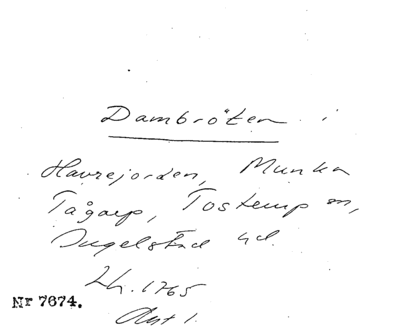 Dambröten i
Havrejorden, Munka
Tågarp, Tosterup sn,
Ingelstad hd.
Lh. 1765
Akt 1.
Nr 7674.